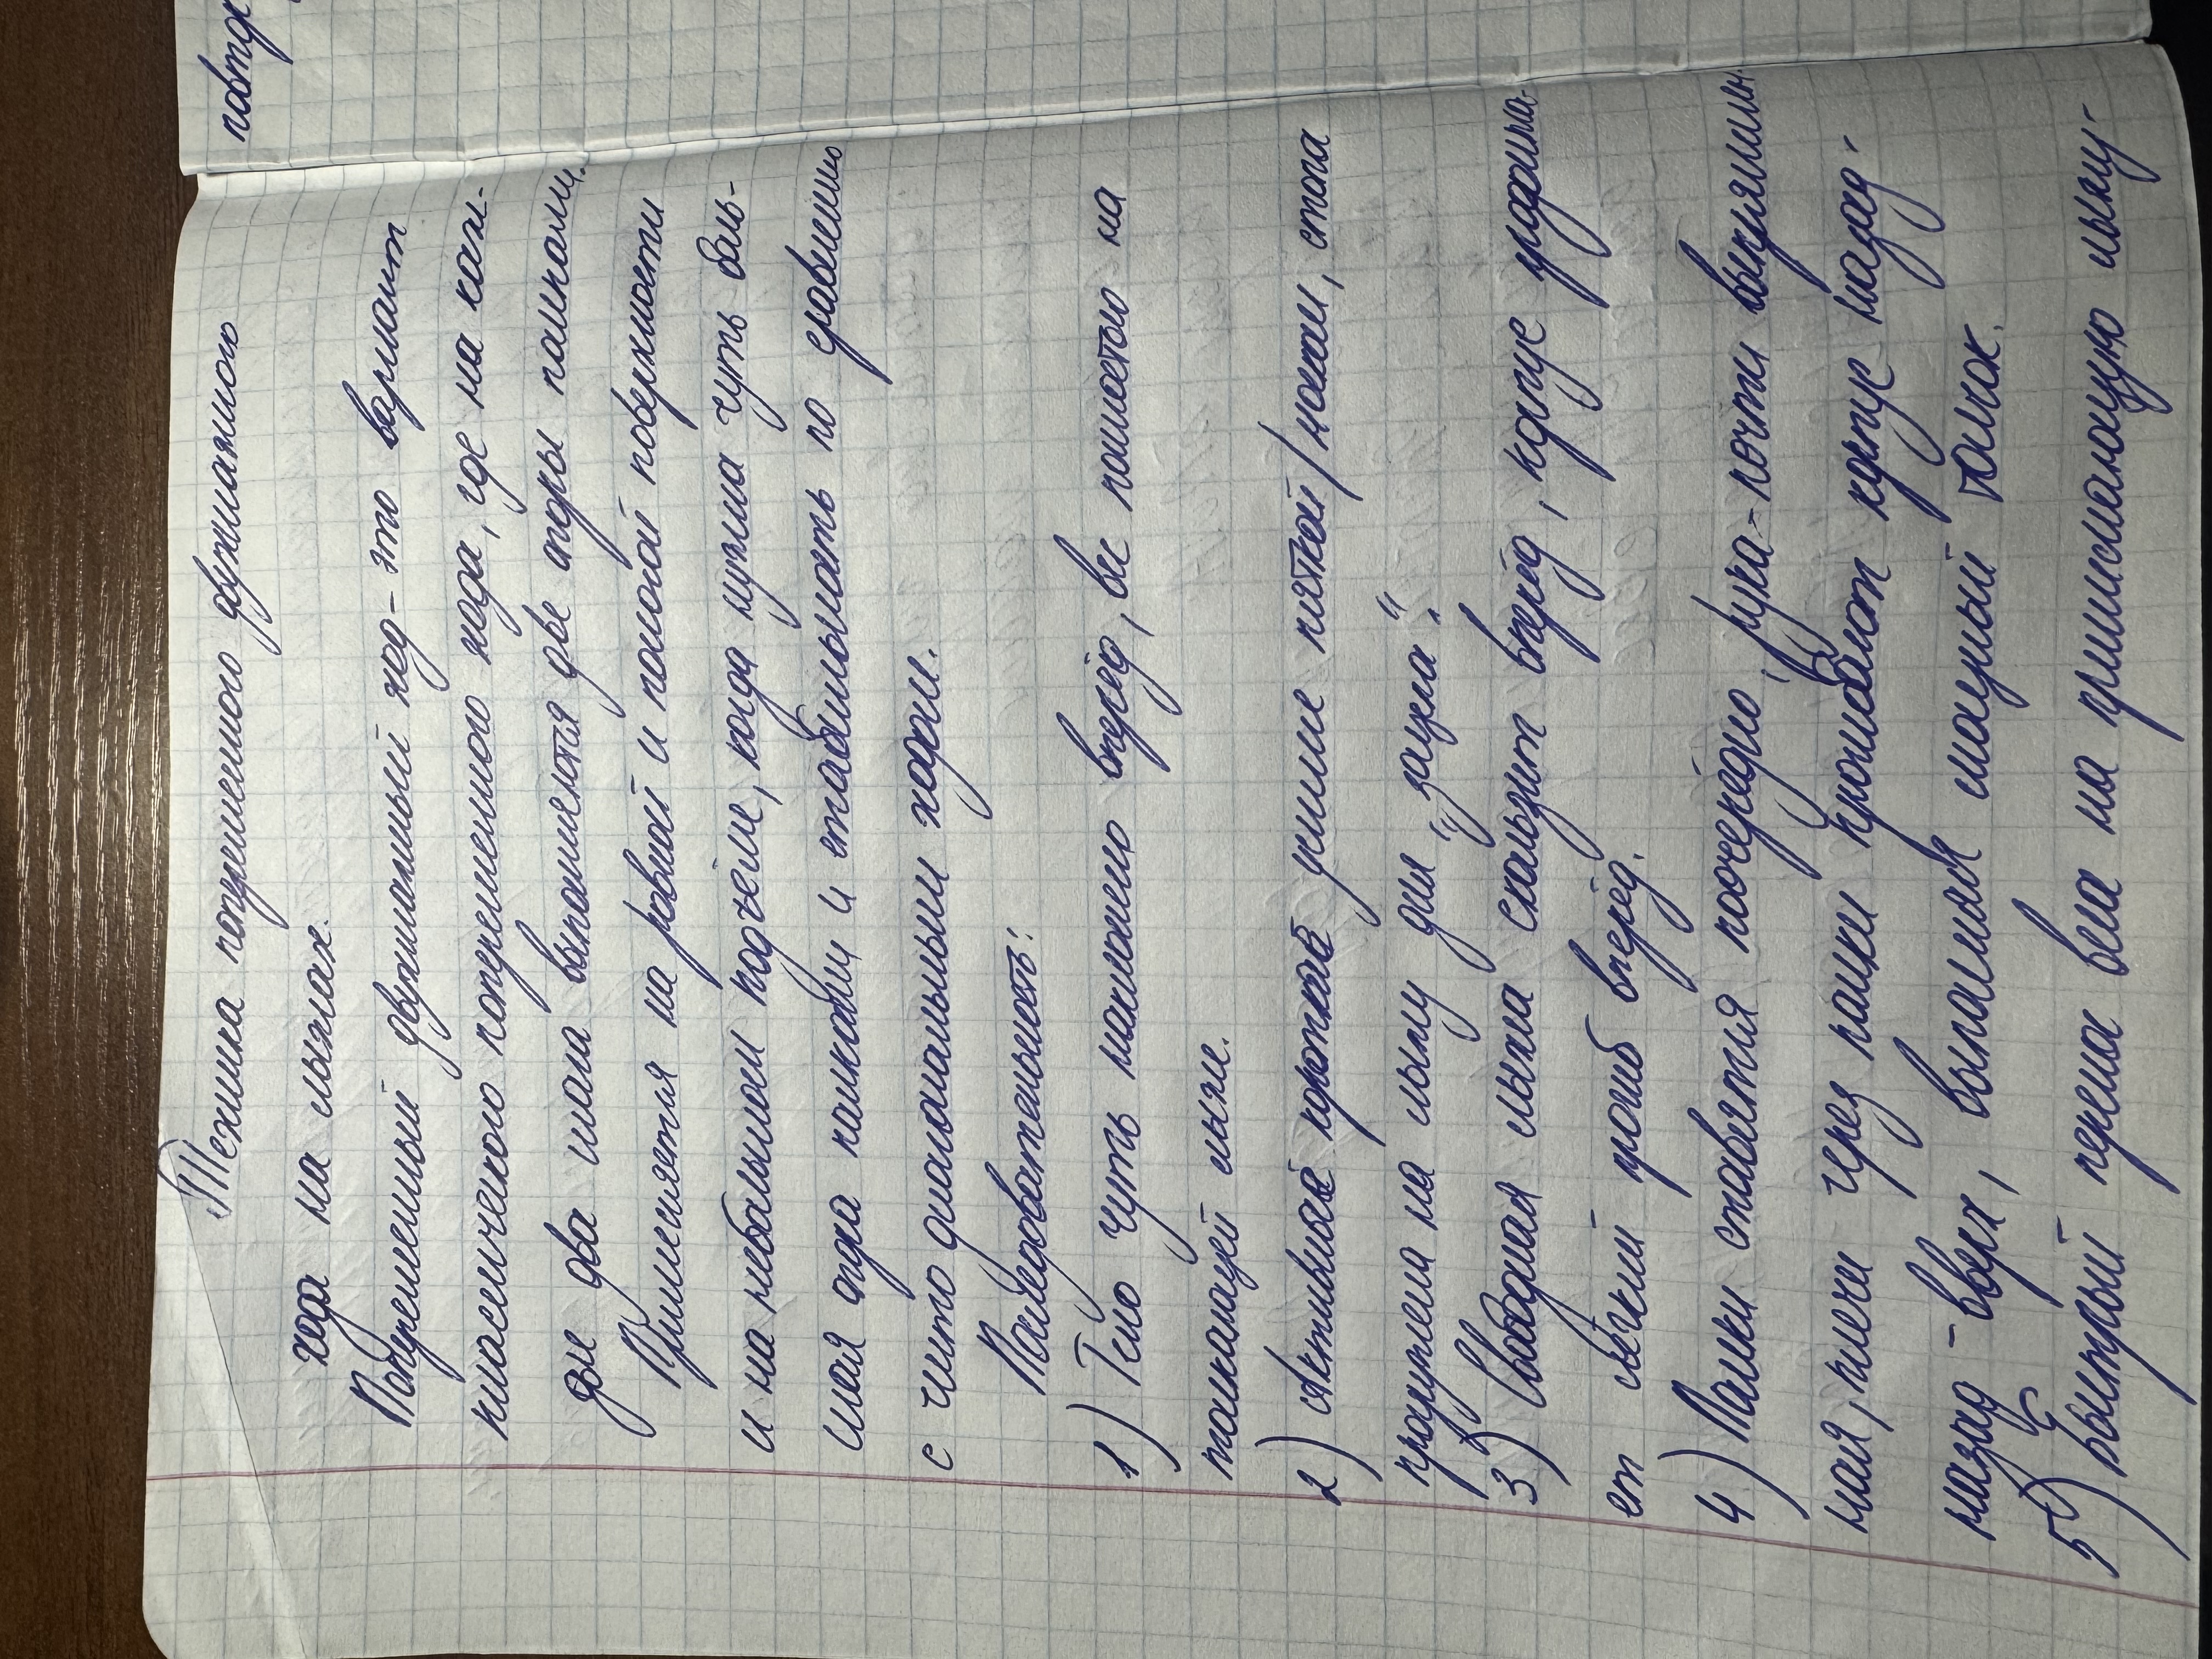 Техника попеременного двухшажного
хода на лыжах.
Попеременный двухшажный ход - это вариант
классического попеременного хода, где на каж-
дые два шага выполняются две опоры палками.
Применяется на ровной и пологой поверхности
и на небольшом подъёме, когда нужна чуть боль-
шая опора палками и стабильность по сравнению
с чисто диагональным ходом.
Последовательность:
1) Тело чуть наклонено вперёд, вес полностью на
толкающей лыже.
2) Активный короткий усилие пяткой/носком, стопа
продавлена на лыжу для "зацепа".
3) Свободная лыжа скользит вперёд, корпус
ет лёгкий прогиб вперёд.
4) Палки ставятся поочерёдно, рука - почти выпрямлен-
ная, плечи через палки проталкивают корпус назад -
назад - вверх, выполняя мощный толчок.
5) Быстрый перенос веса на принимающую лыжу -
повтор